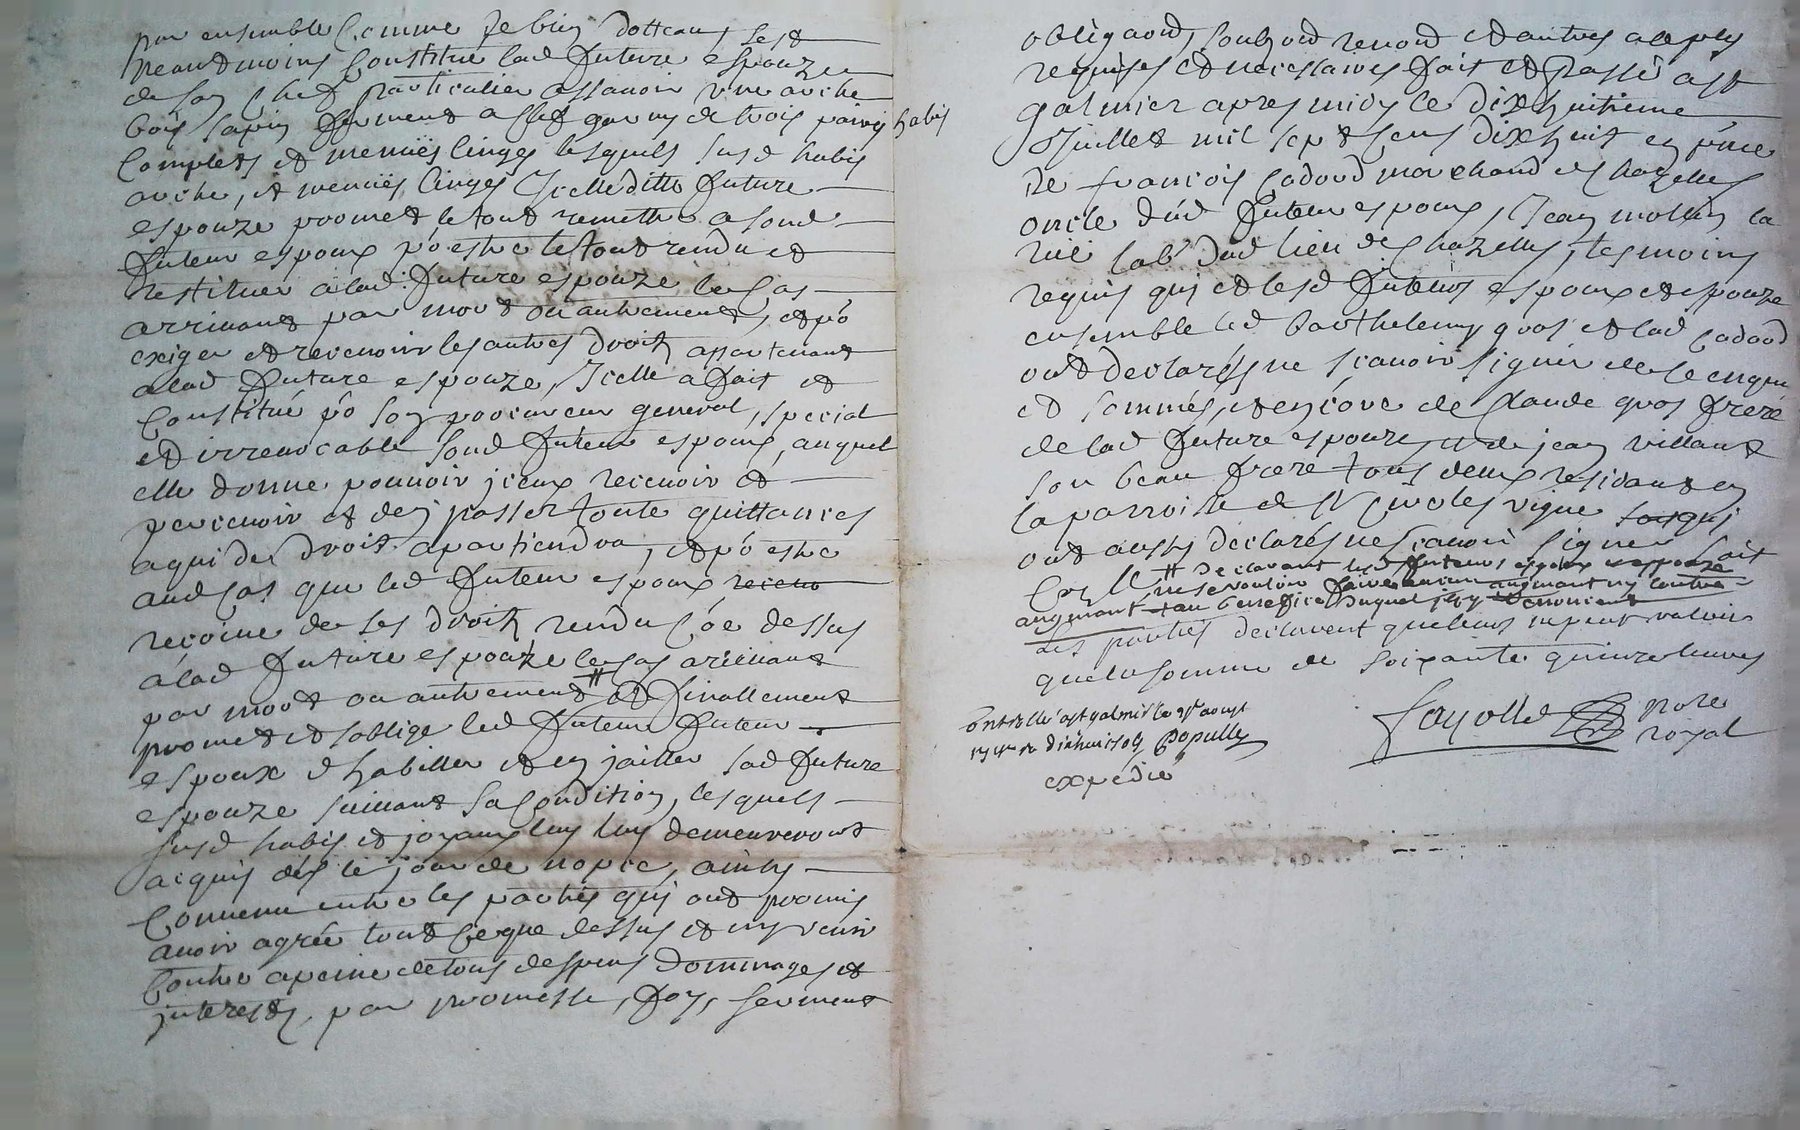 par ensemble comme Je bien dottaux sest
neantmoins Constitue lad future espouze
de son chef particulier assavoir une arche
bois sapin ferment a clef garny de trois pairey habis
Complets et menuës linges lesquels susd habis
arche, et menuës linges Jcelleditte future
espouze promet letout remettre a sond
futeur espoux po estre letout rendu et
restituer a lad. future espouze le Cas
arrivant par mort ou autrement, et po
exiger et recevoir les autres droits apartenant
alad future espouze, Jcelle a fait et
Constitué po son procureur general, special
et irrevocable sond futeur espoux, auquel
elle donne pouvoir jceux recevoir et
percevoir et den passer toute quittances
aqui de droit apartiendra, et po estre
aud Cas que led futeur espoux recevo
recoive de ses droits rendu Coe dessus
a lad future espouze le cas arrivant
par mort ou autrement # et finallement
promet et soblige led futeur futeur
espoux dhabiller et en jailler sad future
espouze suivant sa Condition, lesquels
susd habis et joyaux luy luy demeureront
acquis des le jour de nopce, ainsy
Convenu entre les parties qui ont promis
avoir agrée tout Ce que dessus et ny venir
Contre a peine de tous despens dommages et
interests, par promesse, foy, serment
obligaons, soubzons renons et autres clauses
requises et necessaires fait et passé a st
galmier apres midy le dix huitieme
Juillet mil sept cens dix huit en pnce
de francois Cadord marchand de chazelles
oncle dud futeur espoux, Jean mollin la
rüe lab dud lieu de Chazelles, tesmoins
requis qui et lesd futeurs espoux et espouze
ensemble led barthelemy gros et lad Cadord
ont declarés ne scavoir signer de ce enquis
et sommés, et encore de Claude gros frere
de lad future espouze et de jean villaut
son beau frere tous deux residant en
la parroisse de st Cir les vigne
ont aussy declarés ne scavoir signer
# declarant led futeurs espoux et espouze
ne se vouloir faire aucun augment ny contre
augment
les parties declarent que leurs ne peut valoir
que la somme de soixante quinze livres
Fayolle nore
royal
Controllé a st galmier le 1er aoust
Populle
expedié